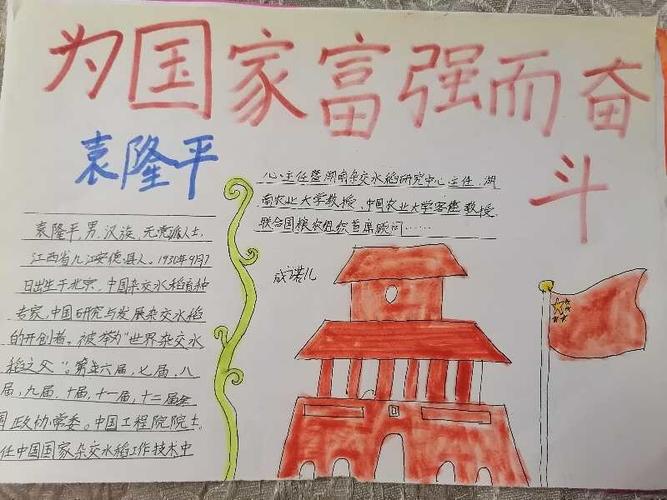 为国家富强而奋
斗
袁隆平
袁隆平,男,汉族,无党派人士,
江西省九江安德县人。1930年9月7
日出生于北京,中国杂交水稻育种
专家,中国研究与发展杂交水稻
的开创者。被举为"世界杂交水
稻之父"。第五六届,七届,八
届,九届,十届,十一届,十二届全
国政协常委。中国工程院院士.
任中国国家杂交水稻工作技术中
心主任暨湖南杂交水稻研究中心主任、湖
南农业大学教授、中国农业大学客座教授、
联合国粮农组织首席顾问……
成诺儿